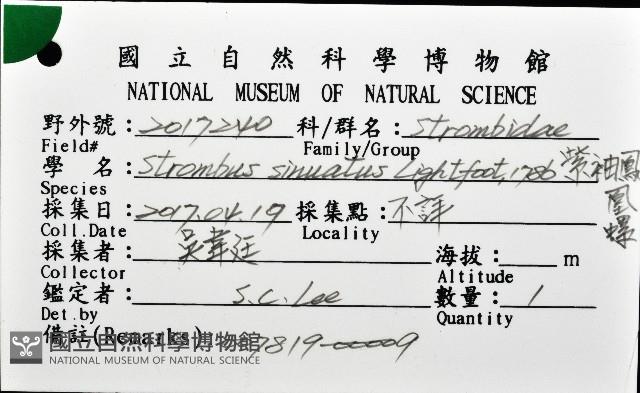 國立自然科學博物館
NATIONAL MUSEUM OF NATURAL SCIENCE
野外號：2017240 科/群名：Strombidae
Field# Family/Group
學名：Strombus sinuatus Lightfoot, 1786 紫袖鳳凰螺
Species
採集日：2017.04.19 採集點：不詳
Coll.Date Locality
採集者：吳葦廷 海拔： m
Collector Altitude
鑑定者：S.C. Lee 數量：1
Det.by Quantity
備註(Remarks) 7819-00009
國立自然科學博物館
NATIONAL MUSEUM OF NATURAL SCIENCE